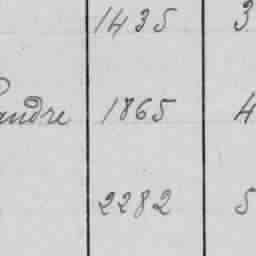 1435 3
andre 1865 4
2282 5